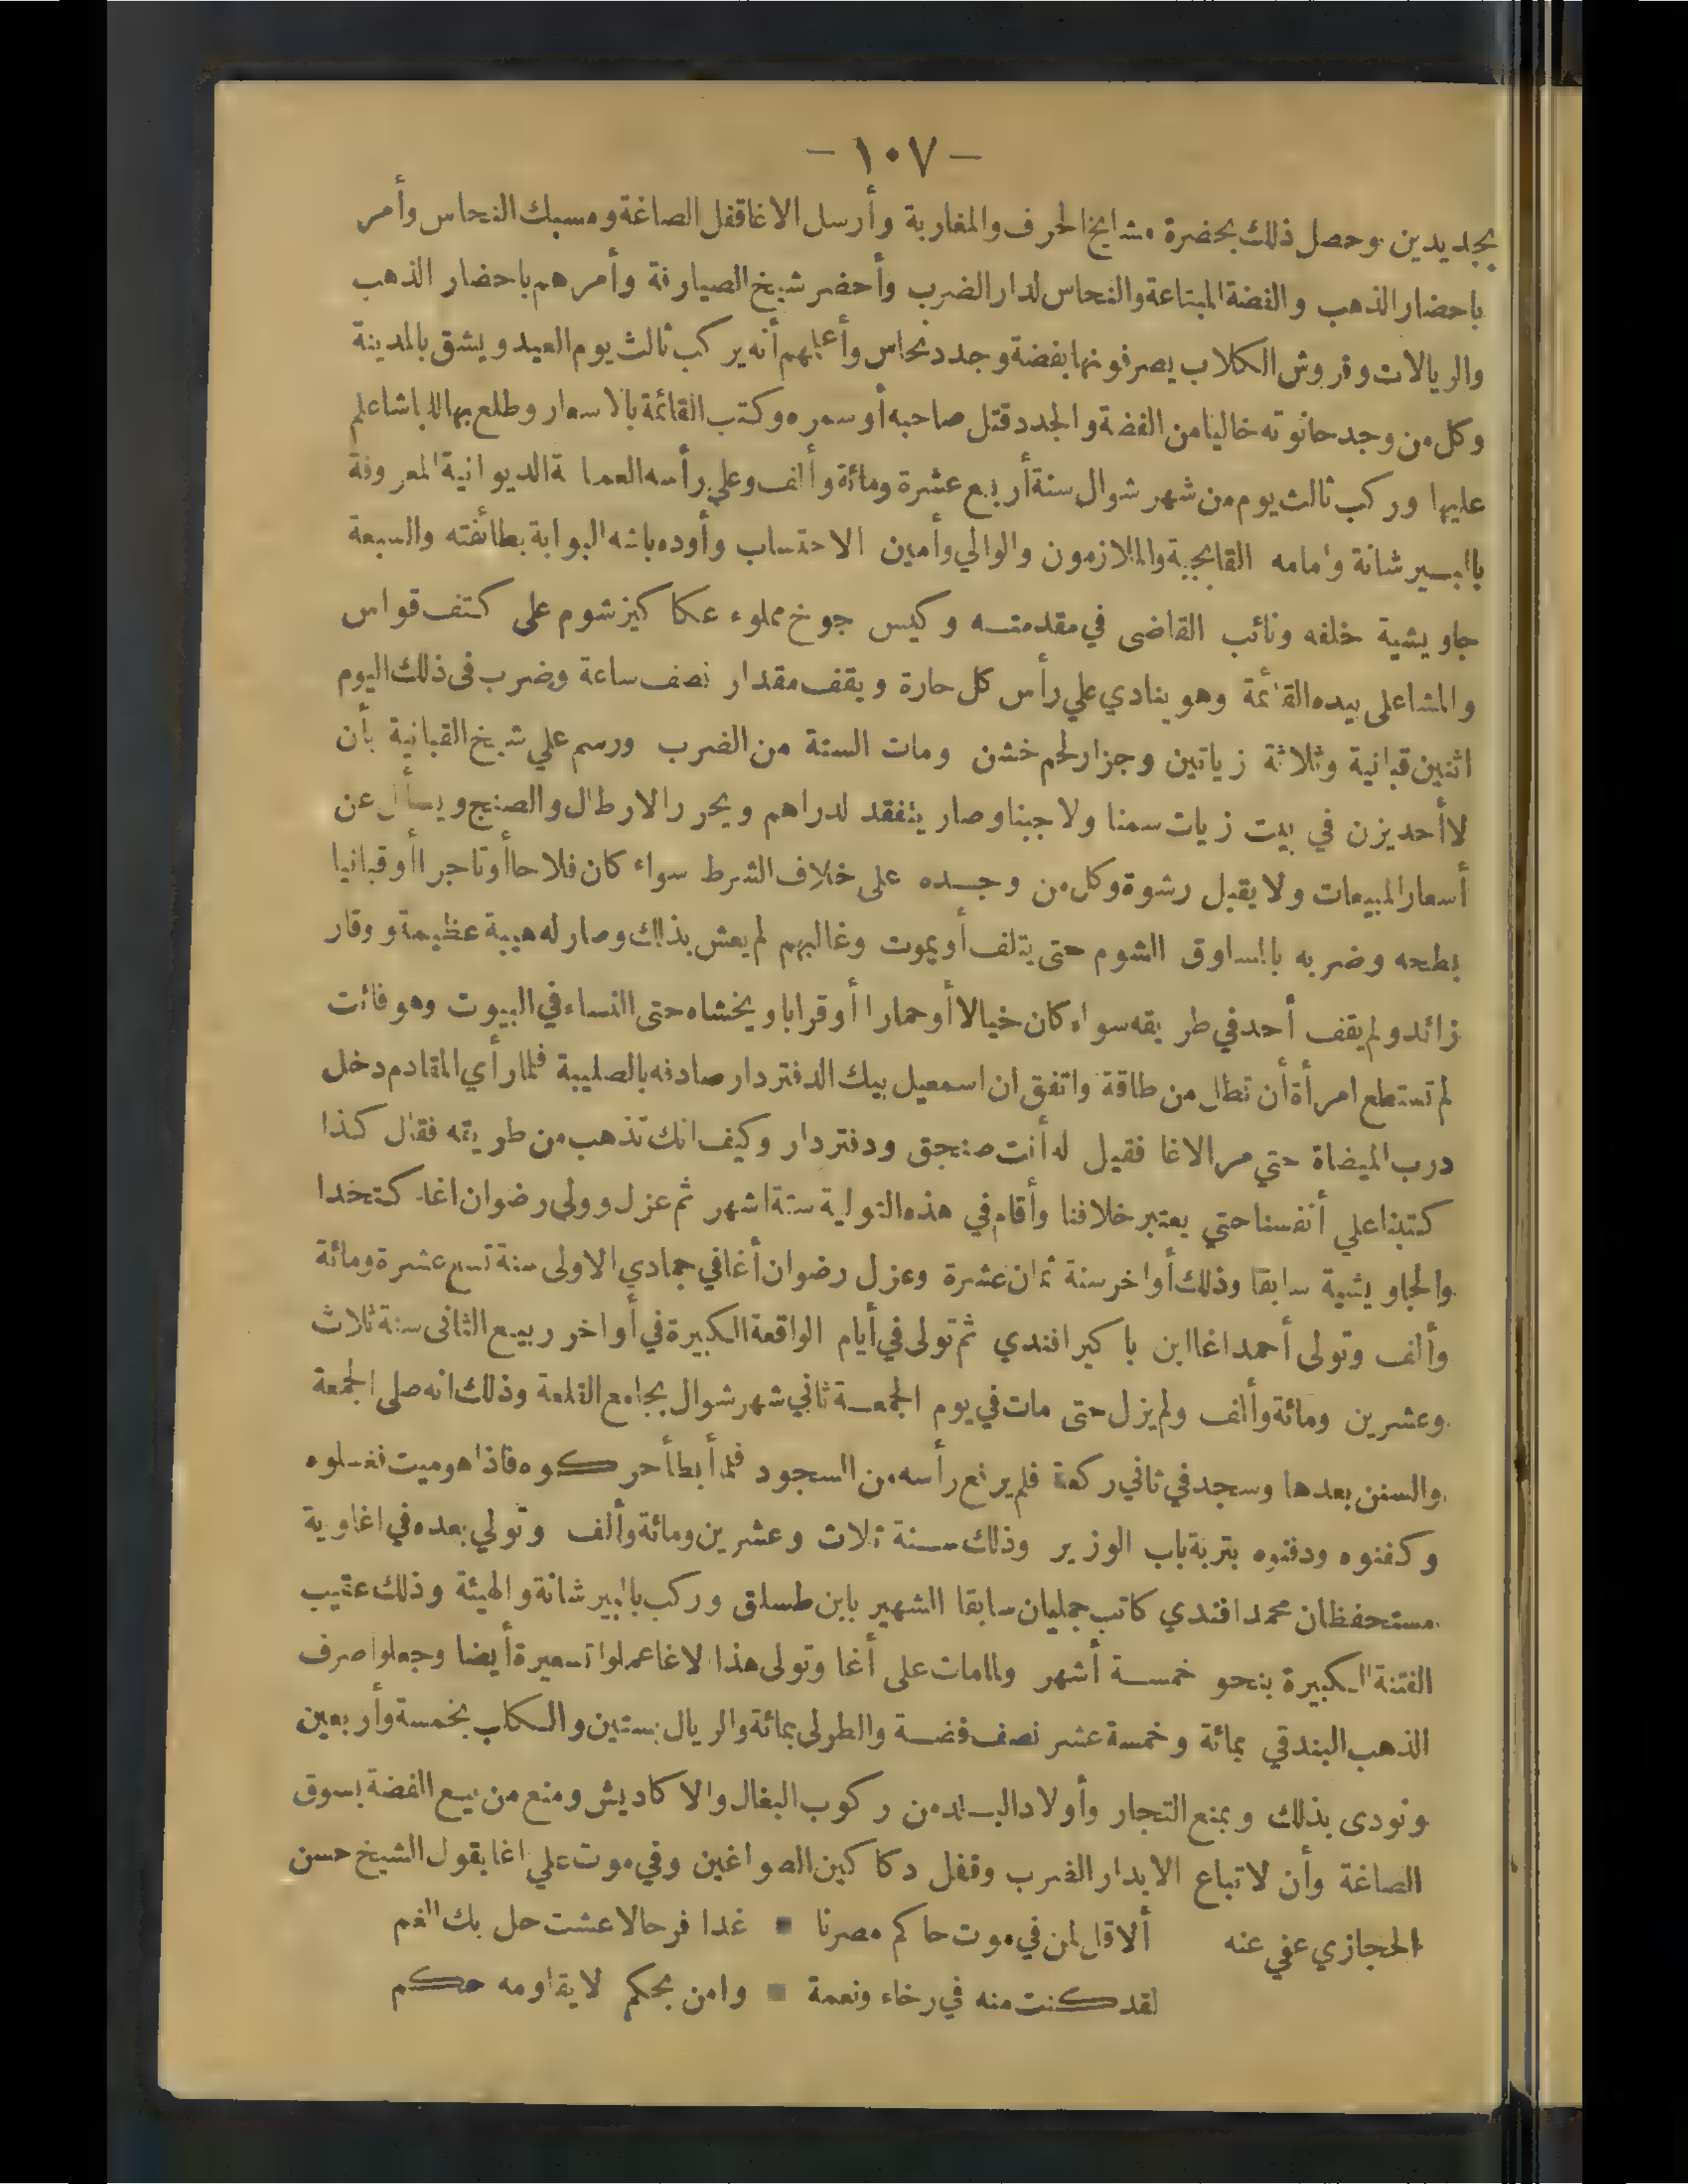 - ١٠٧ -
بجديدين وحصل ذلك بحضرة مشايخ الحرف والمغاربة وأرسل الاغا قفل الصاغة ومسبك النحاس وأمر
باحضار الذهب والفضة المبتاعة والنحاس لدار الضرب وأحضر شيخ الصيارفة وأمرهم باحضار الذهب
والريالات وقروش الكلاب يصرفونها بفضة وجدد نحاس وأعلمهم أنه يركب ثالث يوم العيد ويشق بالمدينة
وكل من وجد حانوته خاليا من الفضة والجدد قتل صاحبه أو سمره وكتب القائمة بالاسعار وطلع بها للباشا علم
عليها وركب ثالث يوم من شهر شوال سنة أربع عشرة ومائة وألف وعلى رأسه العمامة الديوانية المعروفة
بالبيسيرشانة وامامه القابجية والملازمون والوالي وأمين الاحتساب وأوده باشه البوابة بطائفته والسبعة
جاويشية خلفه ونائب القاضى في مقدمته وكيس جوخ مملوء عكاكيز شوم على كتف قواس
والمشاعلى بيده القائمة وهو ينادي علي رأس كل حارة ويقف مقدار نصف ساعة وضرب فى ذلك اليوم
اثنين قبانية وثلاثة زياتين وجزار لحم خشن ومات الستة من الضرب ورسم علي شيخ القبانية بأن
لا أحد يزن في بيت زيات سمنا ولا جبنا وصار يتفقد لدراهم ويحرر الارطال والصنج ويسأل عن
أسعار المبيعات ولا يقبل رشوة وكل من وجده على خلاف الشرط سواء كان فلاحا أو تاجرا أو قبانيا
بطحه وضربه بالمساوق الشوم حتى يتلف أو يموت وغالبهم لم يعش بذلك وصار له هيبة عظيمة ووقار
زائد ولم يقف أحد في طريقه سواء كان خيالا أو حمارا أو قرابا ويخشاه حتى النساء في البيوت وهو فائت
لم تستطع امرأة أن تطل من طاقة واتفق ان اسمعيل بيك الدفتردار صادفه بالصليبة فلما رأي المقادم دخل
درب الميضاة حتي مر الاغا فقيل له أنت صنجق ودفتردار وكيف انك تذهب من طريقه فقال كذا
كتبنا علي أنفسنا حتي يعتبر خلافنا وأقام في هذه التولية ستة اشهر ثم عزل وولى رضوان اغا كتخدا
والجاويشية سابقا وذلك أواخر سنة ثمان عشرة وعزل رضوان أغا في جمادي الاولى سنة تسع عشرة ومائة
وألف وتولى أحمد اغا ابن باكير افندي ثم تولى في أيام الواقعة الكبيرة في أواخر ربيع الثانى سنة ثلاث
وعشرين ومائة وألف ولم يزل حتى مات في يوم الجمعة ثاني شهر شوال بجامع القلعة وذلك انه صلى الجمعة
والسنن بعدها وسجد في ثاني ركعة فلم يرفع رأسه من السجود فلما أبطأ حركوه فاذا هو ميت فغسلوه
وكفنوه ودفنوه بتربة باب الوزير وذلك سنة ثلاث وعشرين ومائة وألف وتولي بعده في اغاوية
مستحفظان محمد افندي كاتب جمليان سابقا الشهير بابن طسلق وركب بالبيرشانة والهيئة وذلك عقيب
الفتنة الكبيرة بنحو خمسة أشهر ولما مات على أغا وتولى هذا الاغا عملوا تسعيرة أيضا وجعلوا صرف
الذهب البندقي بمائة وخمسة عشر نصف فضة والطرلى بمائة والريال بستين والكلب بخمسة وأربعين
ونودى بذلك وبمنع التجار وأولاد البلد من ركوب البغال والاكاديش ومنع من بيع الفضة بسوق
الصاغة وأن لا تباع الا بدار الضرب وقفل دكاكين الصواغين وفي موت علي اغا يقول الشيخ حسن
الحجازي عفي عنه ألا قل لمن في موت حاكم مصرنا ■ غدا فرحا لا عشت حل بك الغم
لقد كنت منه في رخاء ونعمة ■ وامن بحكم لا يقاومه حكم